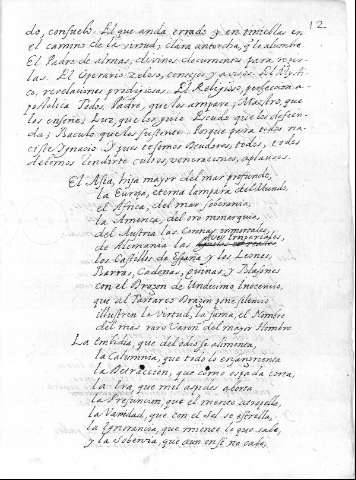 12
do, consuelo. El que anda errado y en tinieblas en
el camino de la virtud; clara antorcha, que le alumbre
El Padre de Almas, divinos documentos para regir-
las. El Operario zeloso, consejos y avisos. El Mysti-
co, revelaciones prodigiosas. El Religioso, perfeccion a-
postolica Todos, Padre, que los ampare; Maestro, que
los enseñe; Luz, que los guie Escudo que los defien-
da; Baculo que los sustente. Porque para todos na-
ciste Ignacio Y pues te somos deudores todos, todos
debemos rendirte cultos, veneraciones, aplausos.
El Asia, hija mayor del mar profundo,
la Europa, eterna lampara del Mundo,
el Africa, del mar soberania,
la America, del oro monarquia,
del Austria las Coronas inmortales,
de Alemania las Aves imperiales,
los Castillos de España y los Leones,
Barras, Cadenas, quinas y Blasones
con el Brazon de Undecimo Inocencio,
que al Tartareo Brazon pone silencio
illustren la Virtud, la fama, el Nombre
del mas raro Varon del mayor Hombre
La embidia, que del odio se alimenta,
la Calumnia, que todo lo ensangrienta
la Detraccion, que como espada corta,
la Ira, que mil aspides aborta
la Presuncion, que el viento atropella,
la Vanidad, que con el Sol se estrella,
la Ignorancia, que menos lo que sabe,
y la Sobervia, que aun en si no cabe,